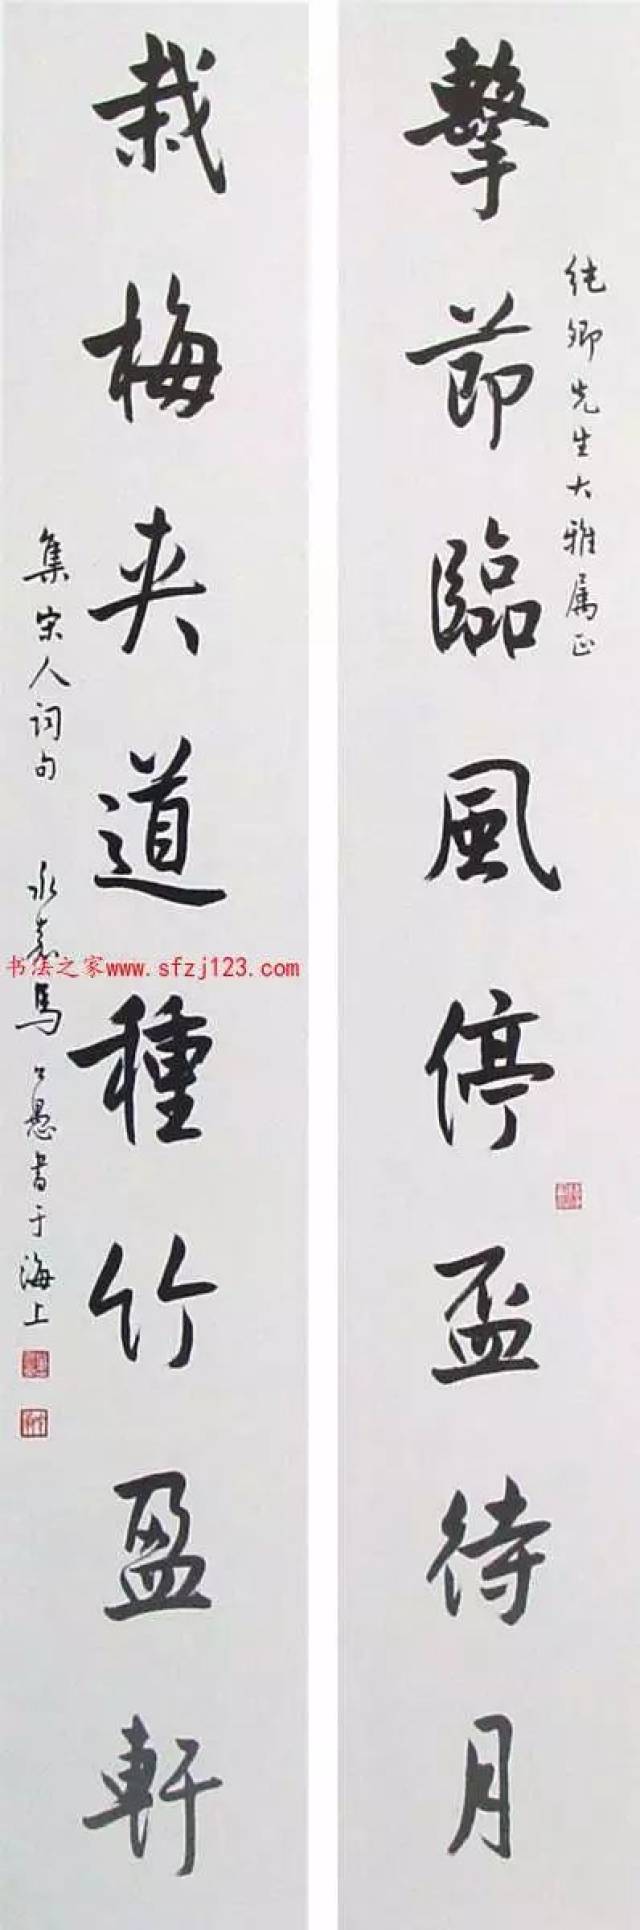 擊節臨風停盃待月
純卿先生大雅属正
栽梅夹道種竹盈軒
集宋人词句 永嘉馬公愚書于海上
书法之家www.sfzj123.com